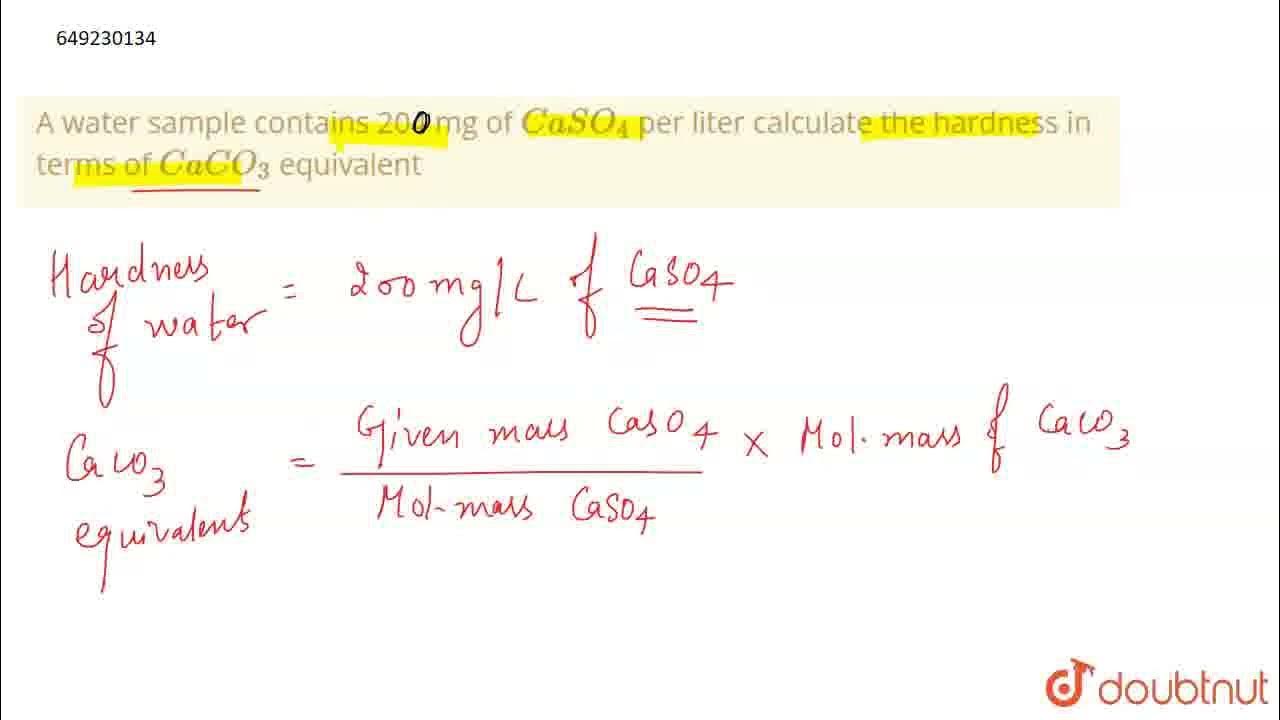 649230134
A water sample contains 200 mg of CaSO₄ per liter calculate the hardness in
terms of CaCO₃ equivalent
Hardness of water = 200 mg/L of CaSO4
CaCO3 equivalent = Given mass CaSO4 / Mol. mass CaSO4 × Mol. mass of CaCO3
doubtnut